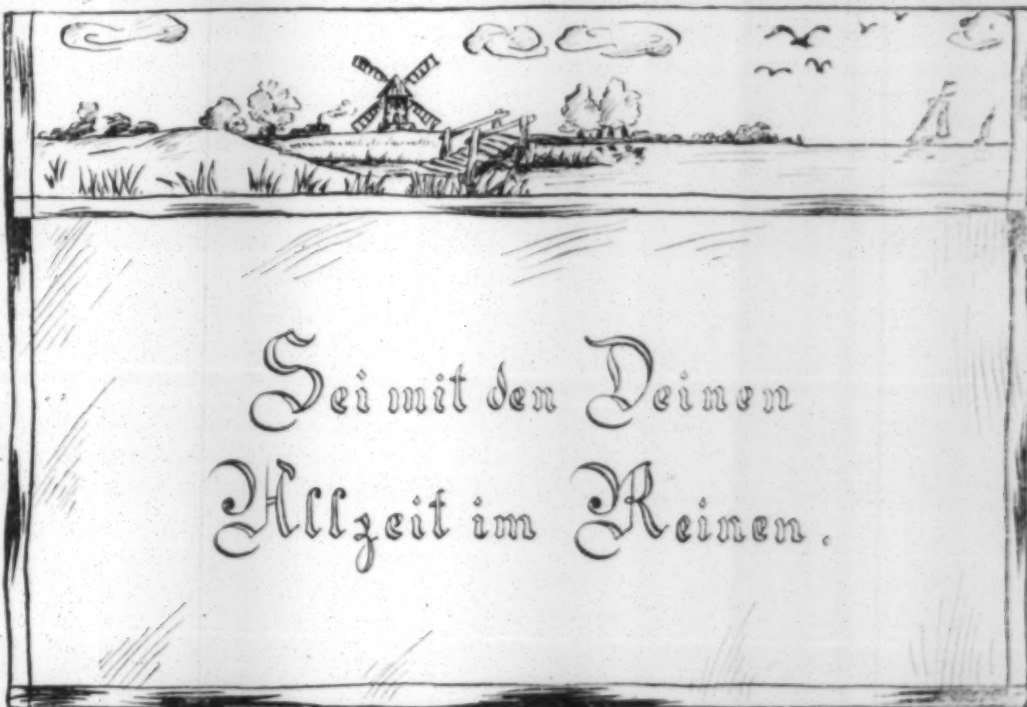 Sei mit den Deinen
Allzeit im Reinen.